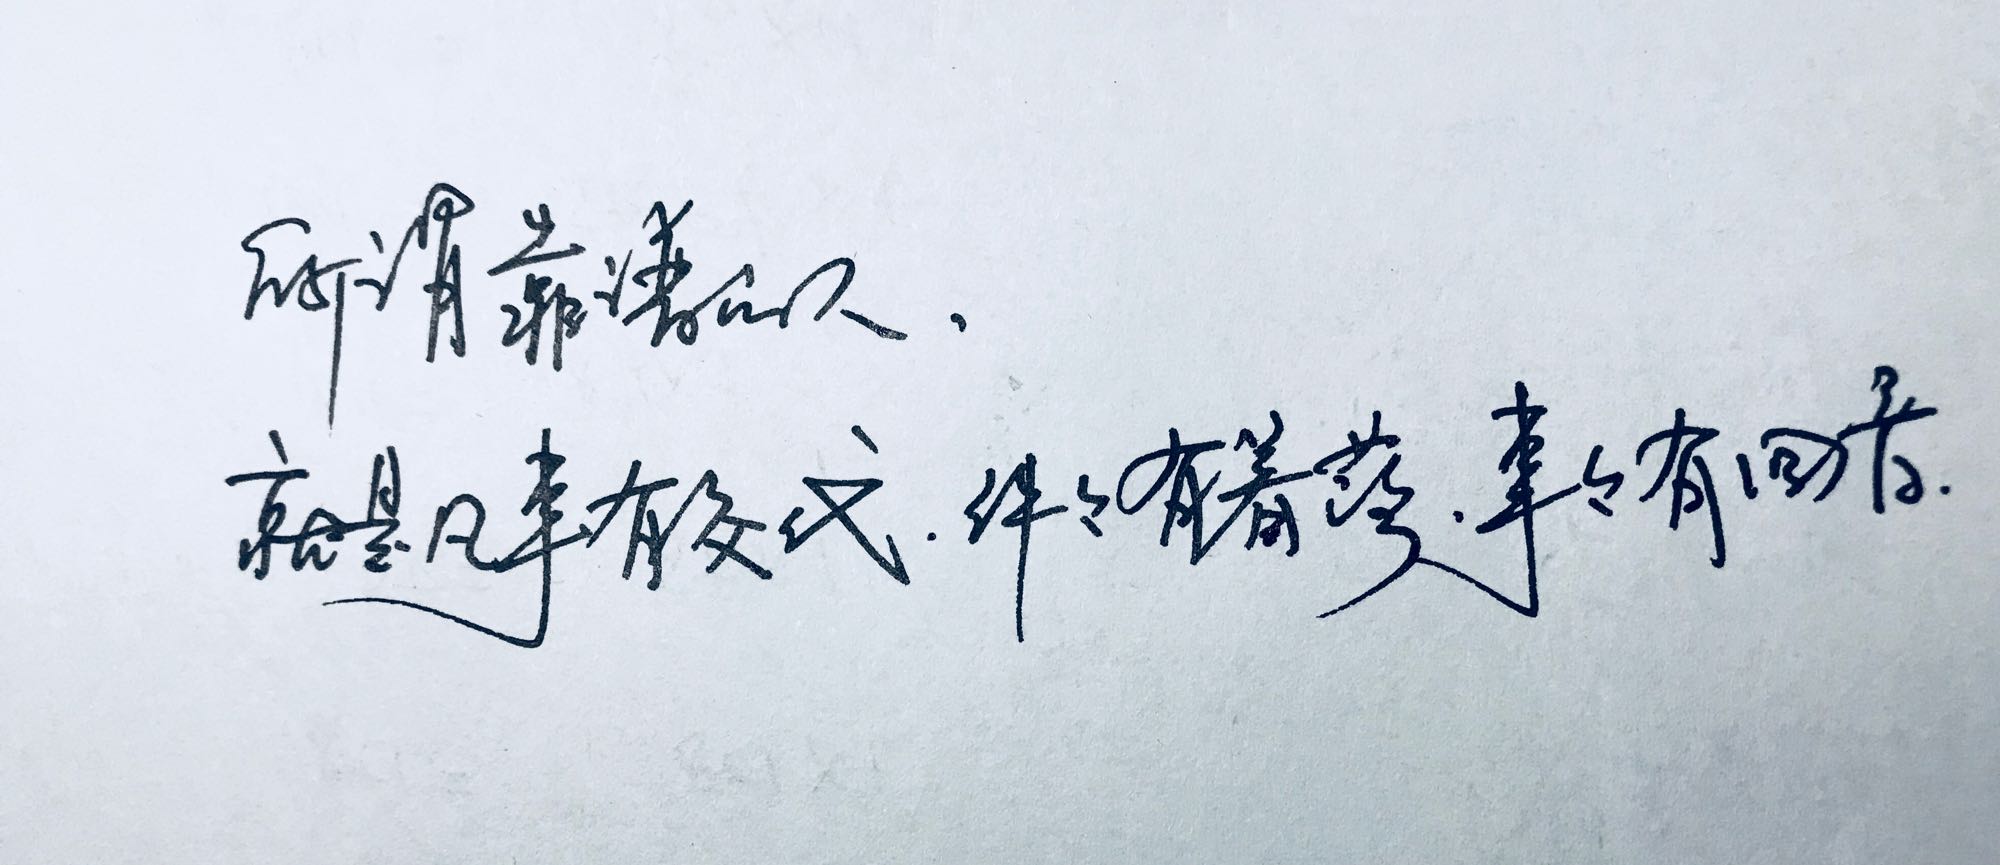 所谓靠谱的人，
就是凡事有交代.件々有着落.事々有回音.